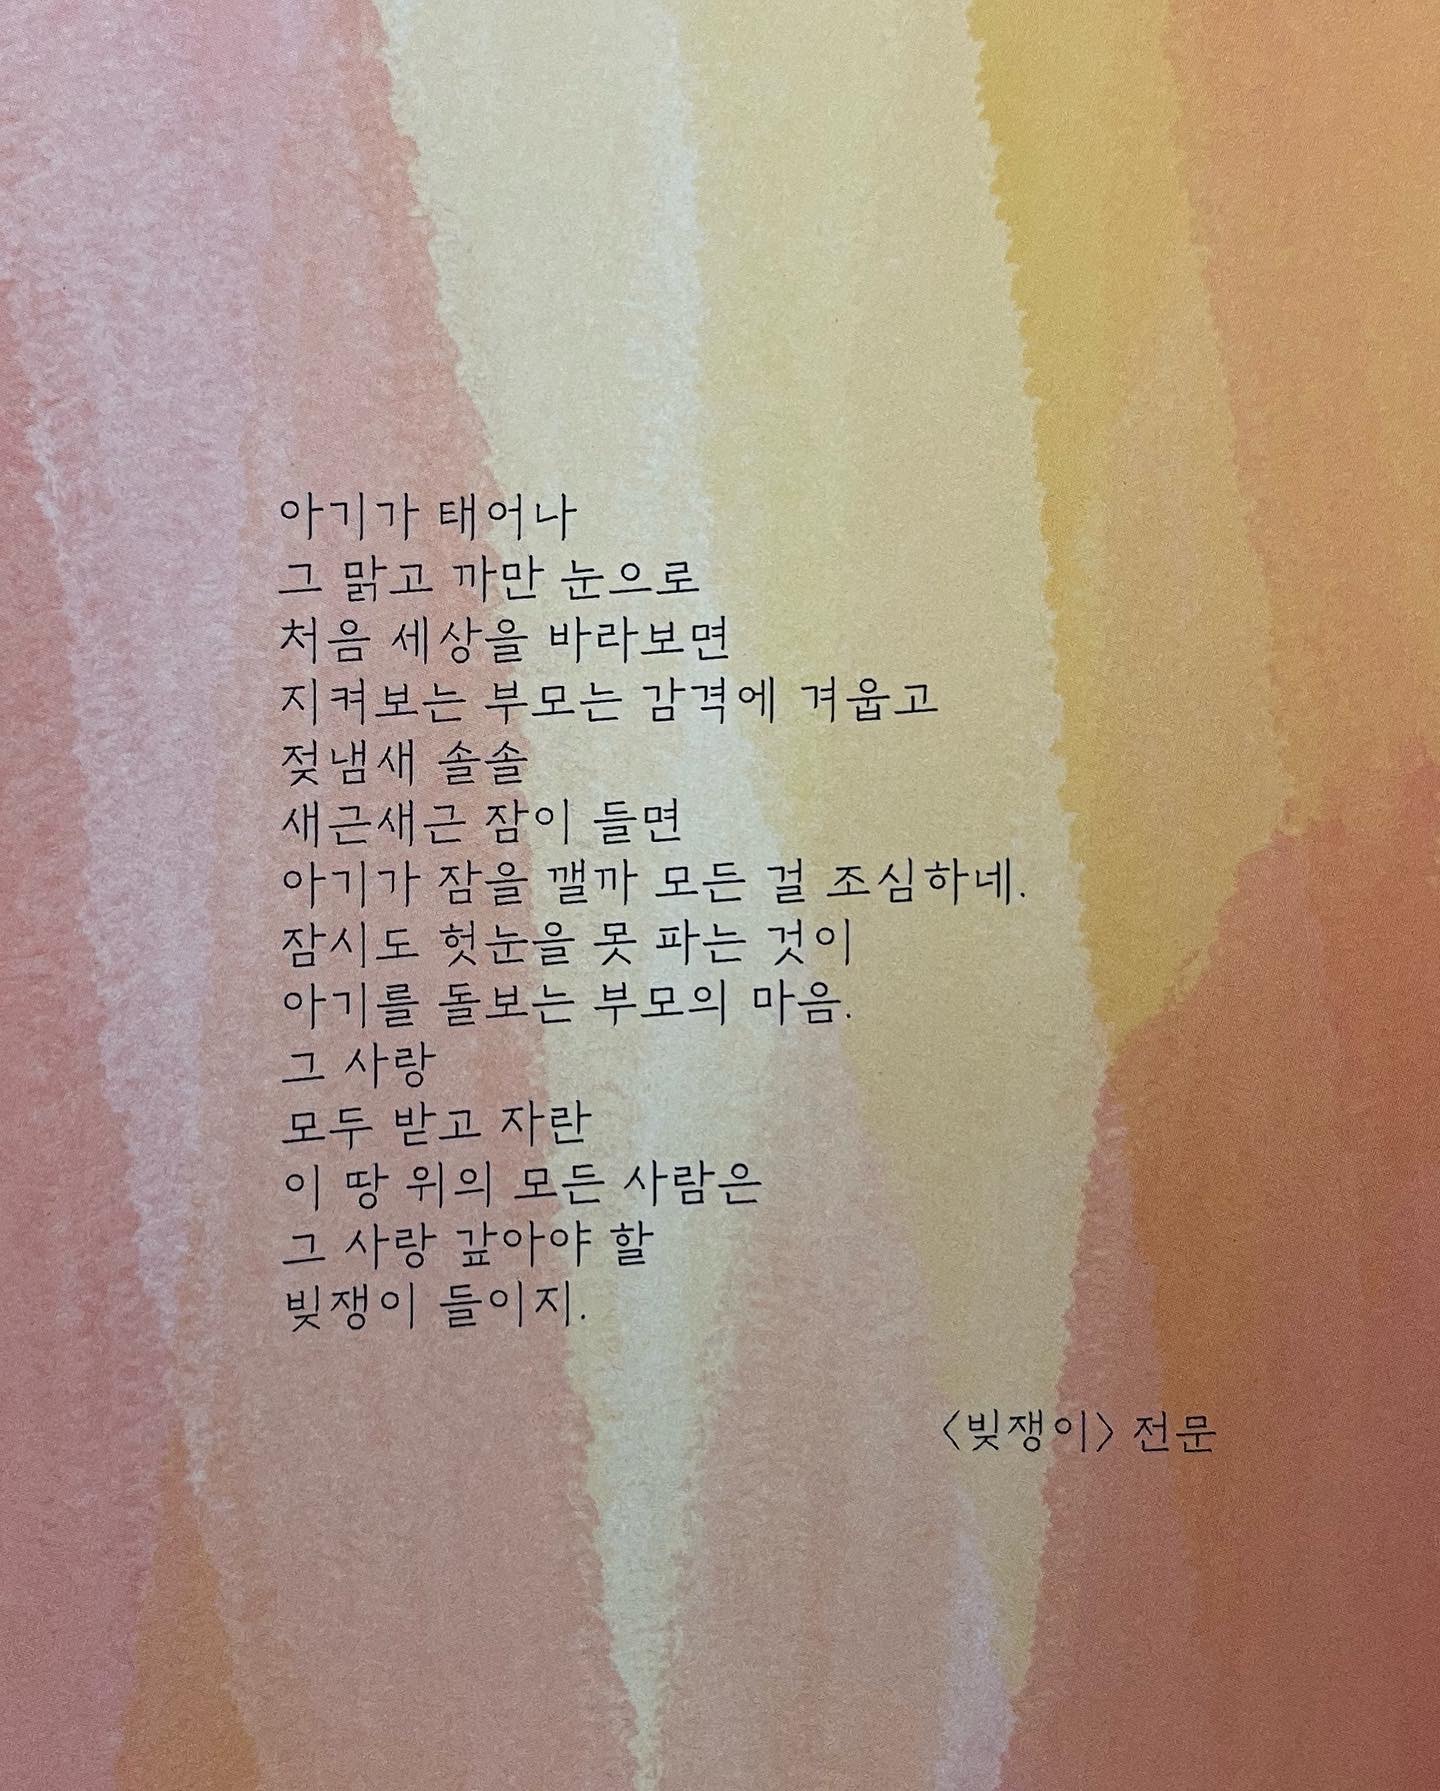 아기가 태어나
그 맑고 까만 눈으로
처음 세상을 바라보면
지켜보는 부모는 감격에 겨웁고
젖냄새 솔솔
새근새근 잠이 들면
아기가 잠을 깰까 모든 걸 조심하네.
잠시도 헛눈을 못 파는 것이
아기를 돌보는 부모의 마음.
그 사랑
모두 받고 자란
이 땅 위의 모든 사람은
그 사랑 갚아야 할
빚쟁이 들이지.
〈빚쟁이〉 전문